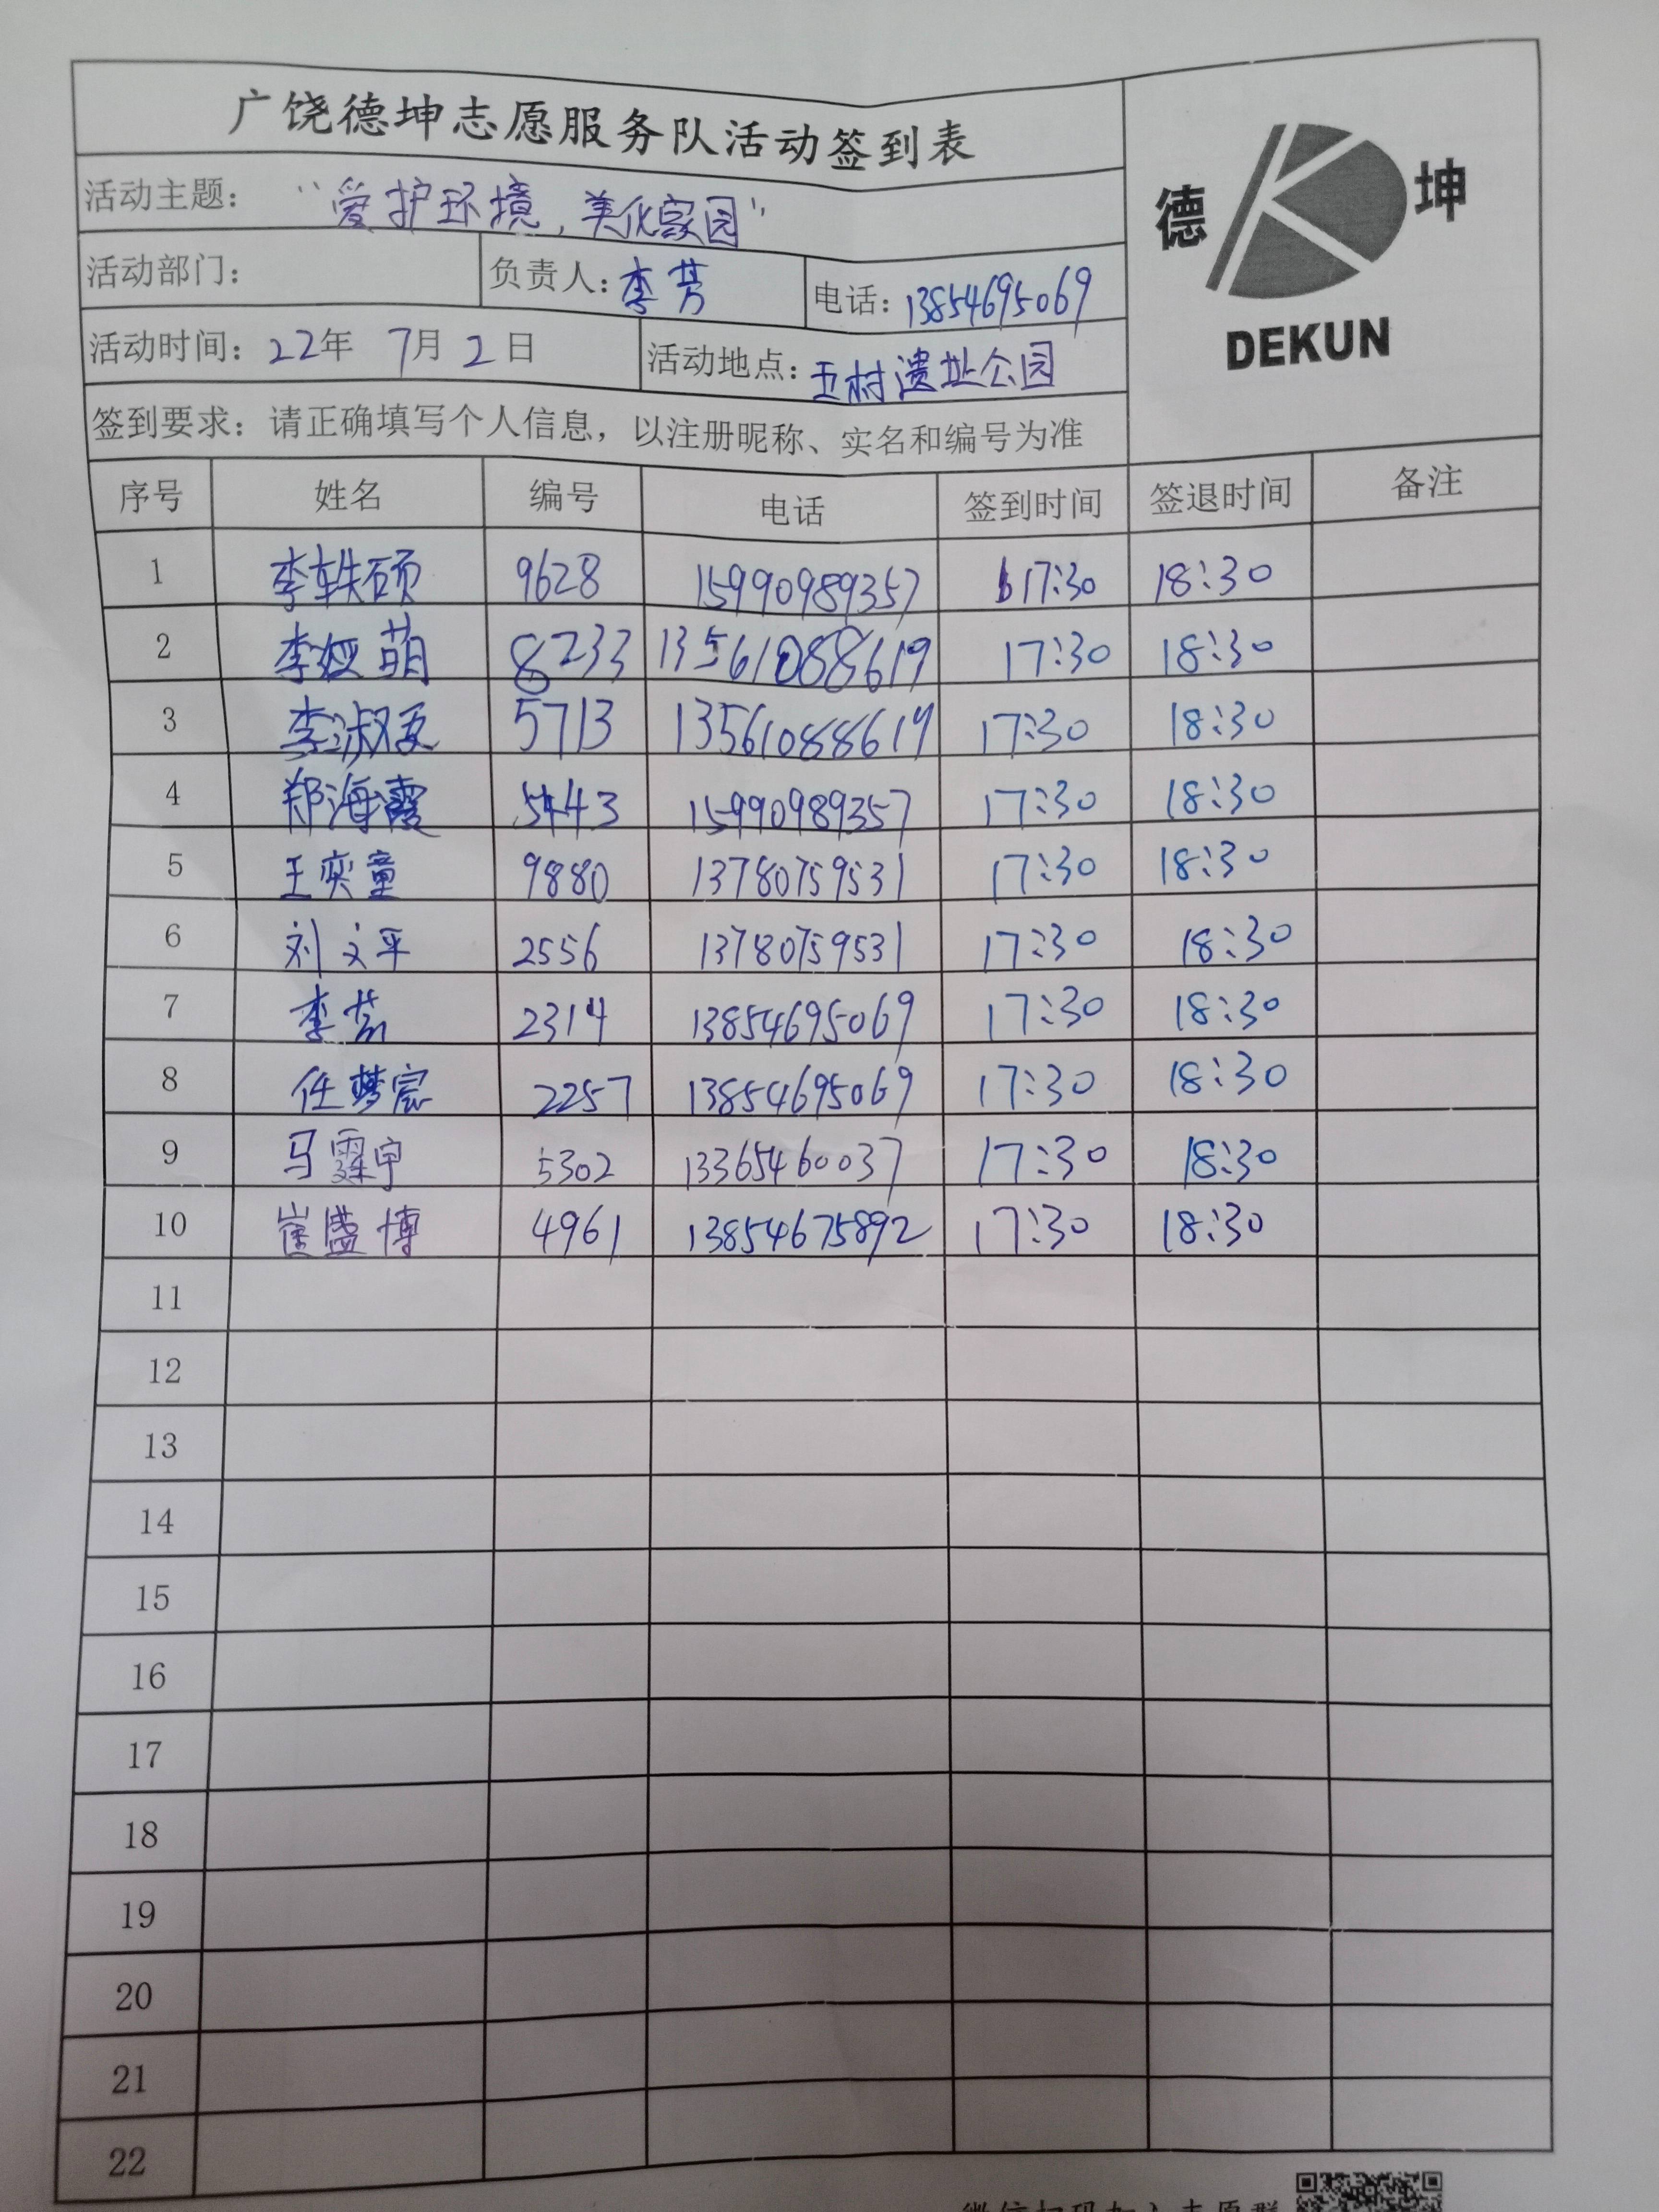 广饶德坤志愿服务队活动签到表
德 坤
DEKUN
活动主题: “爱护环境,美化家园”
活动部门: 负责人:李芳 电话:13854695069
活动时间:22年 7月2日 活动地点:五村遗址公园
签到要求:请正确填写个人信息,以注册昵称、实名和编号为准
序号 姓名 编号 电话 签到时间 签退时间 备注
1 李轶硕 9628 15990989357 17:30 18:30
2 李娅萌 8233 13561088619 17:30 18:30
3 李淑 5713 13561088619 17:30 18:30
4 郑海霞 5443 15990989357 17:30 18:30
5 王奕童 9880 13780759531 17:30 18:30
6 刘文平 2556 13780759531 17:30 18:30
7 李芳 2314 13854695069 17:30 18:30
8 任梦宸 2257 13854695069 17:30 18:30
9 马霖宇 5302 13365460037 17:30 18:30
10 崔盛博 4961 13854675892 17:30 18:30
11
12
13
14
15
16
17
18
19
20
21
22
微信扫码加入志愿群